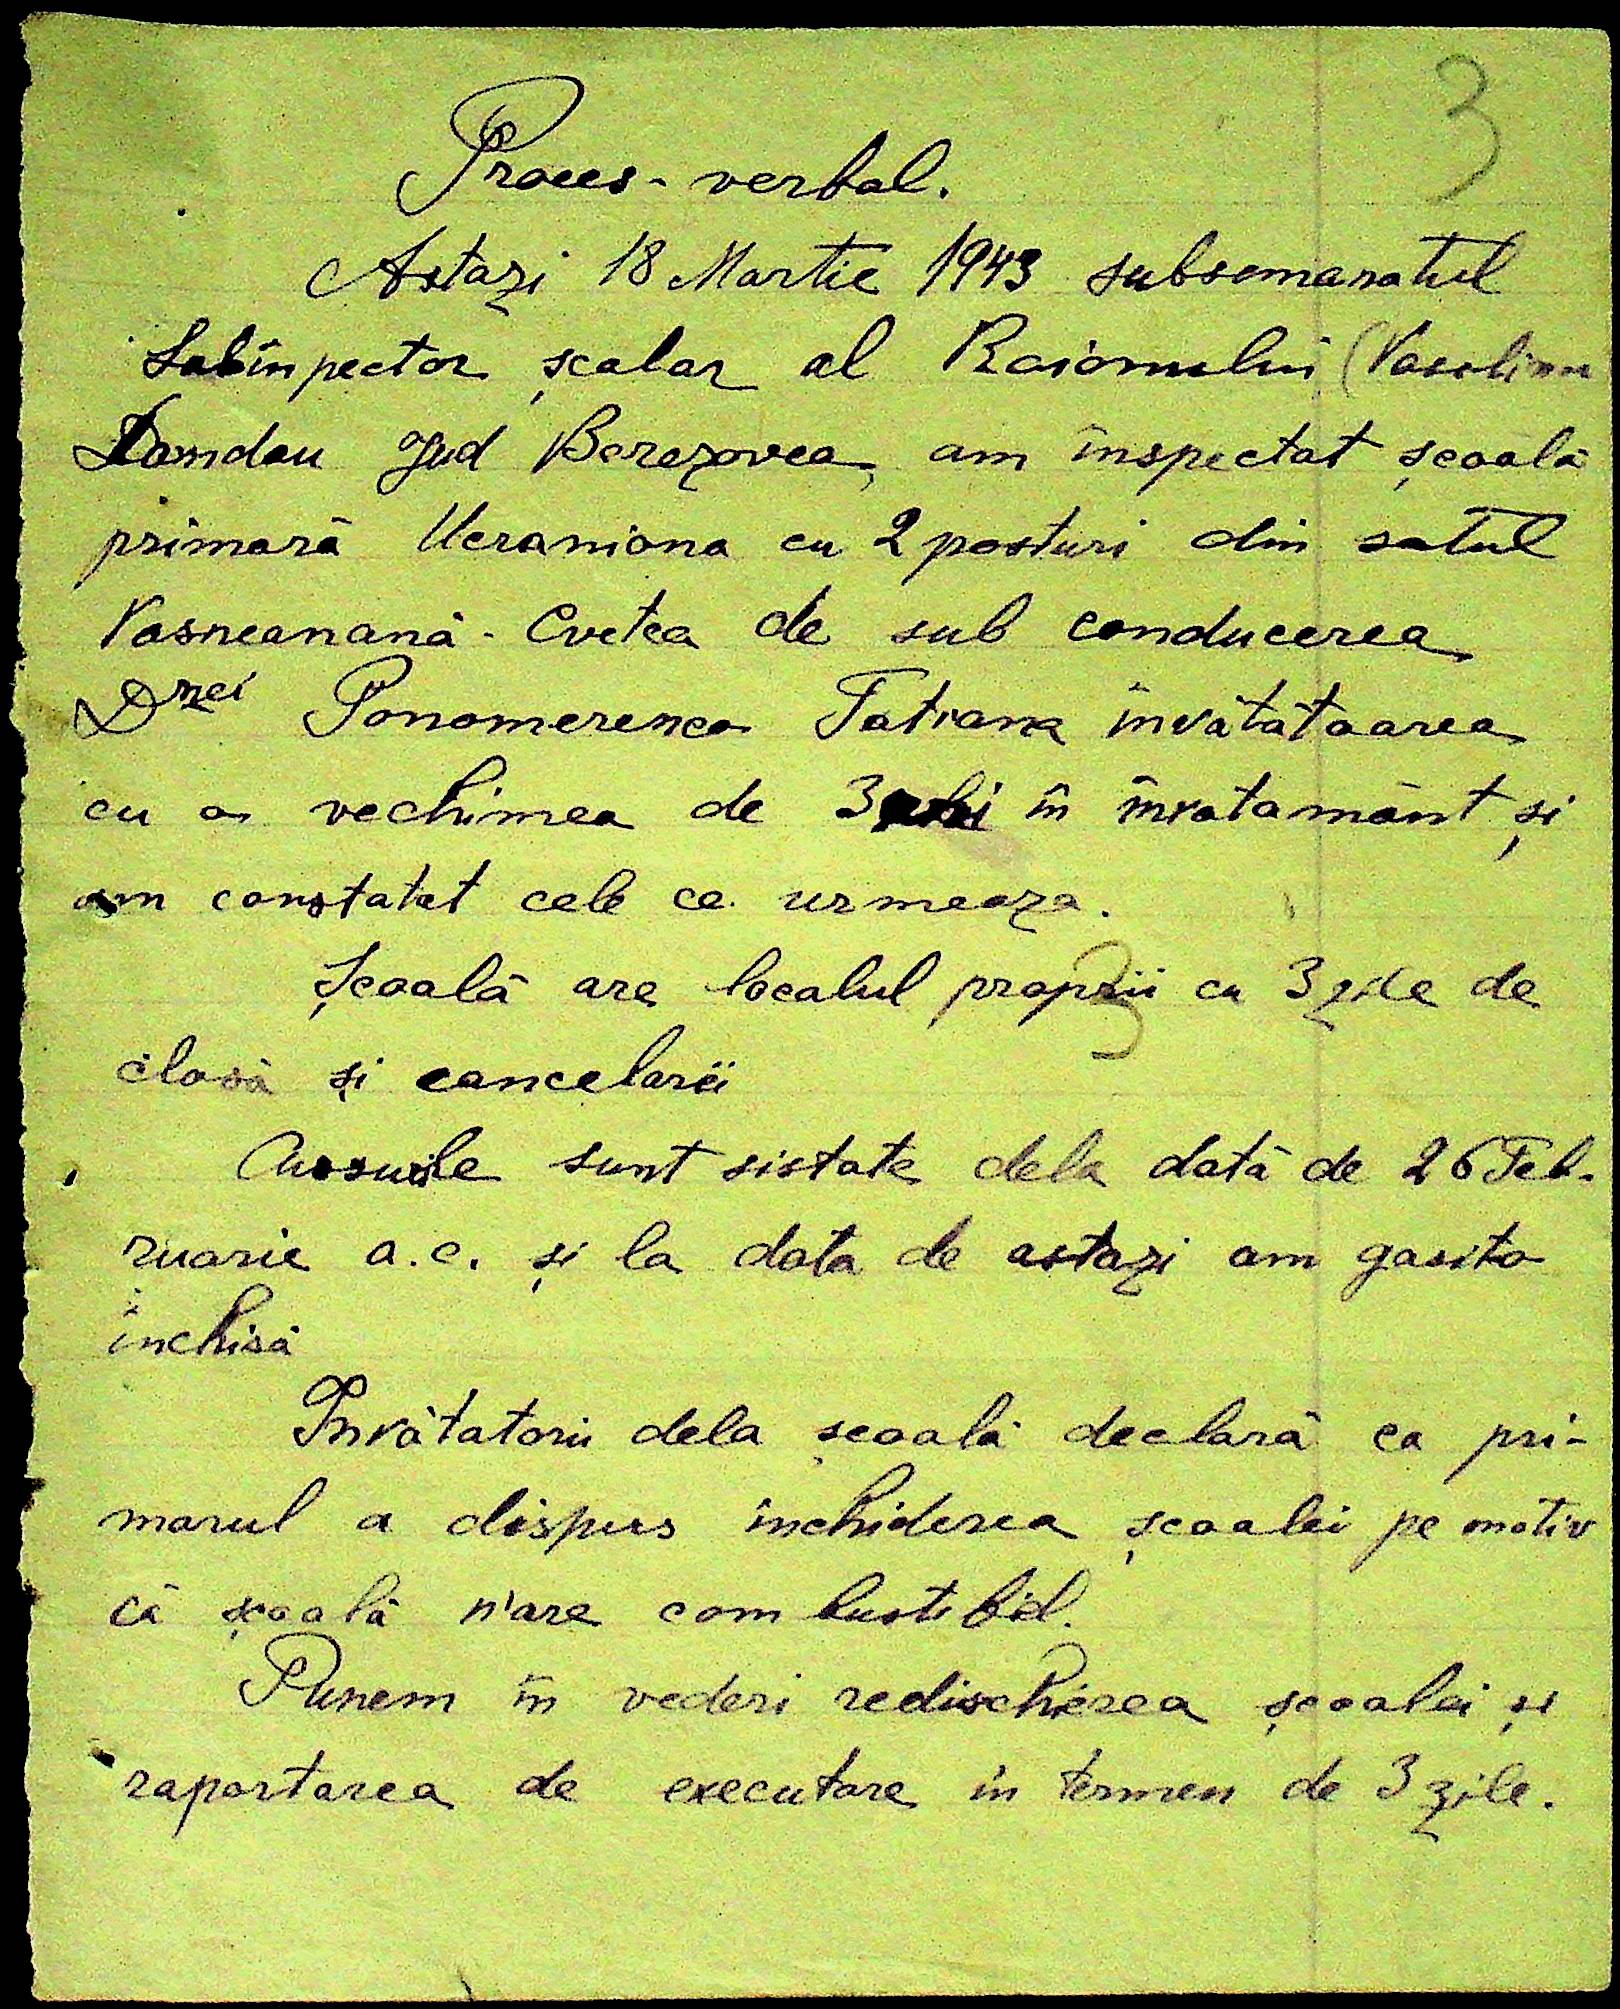 3
Proces-verbal.
Astazi 18 Martie 1943 subsemanatul
Subînpector şcalar al Raionului (Vasolinou
Domdau Jud Berezovca, am înspectat şcoală
primară Ucraniana cu 2 posturi din satul
Vasneanană - Cvetca de sub conducerea
Dnei Ponomerenco Tatiana învătătoarea
cu o vechimea de 3 în învatamânt şi
am constatat cele ce urmeaza.
Şcoală are localul proprii cu 3 de
clasă şi cancelarii
Cursurile sunt sistate dela dată de 26 Feb-
ruarie a.c. şi la data de astazi am gasito
închisă
Învătatorii dela şcoală declară ca pri-
marul a dispus închiderea şcoalei pe motiv
că şcoală n'are combustibil.
Punem în vederi redischierea şcoalei şi
raportarea de executare în termen de 3 zile.